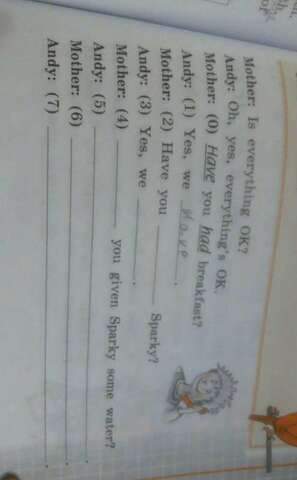 Mother: Is everything OK?
Andy: Oh, yes, everything's OK.
Mother: (0) Have you had breakfast?
Andy: (1) Yes, we have.
Mother: (2) Have you ________ Sparky?
Andy: (3) Yes, we ________.
Mother: (4) ________ you given Sparky some water?
Andy: (5) ________.
Mother: (6) ________.
Andy: (7) ________.